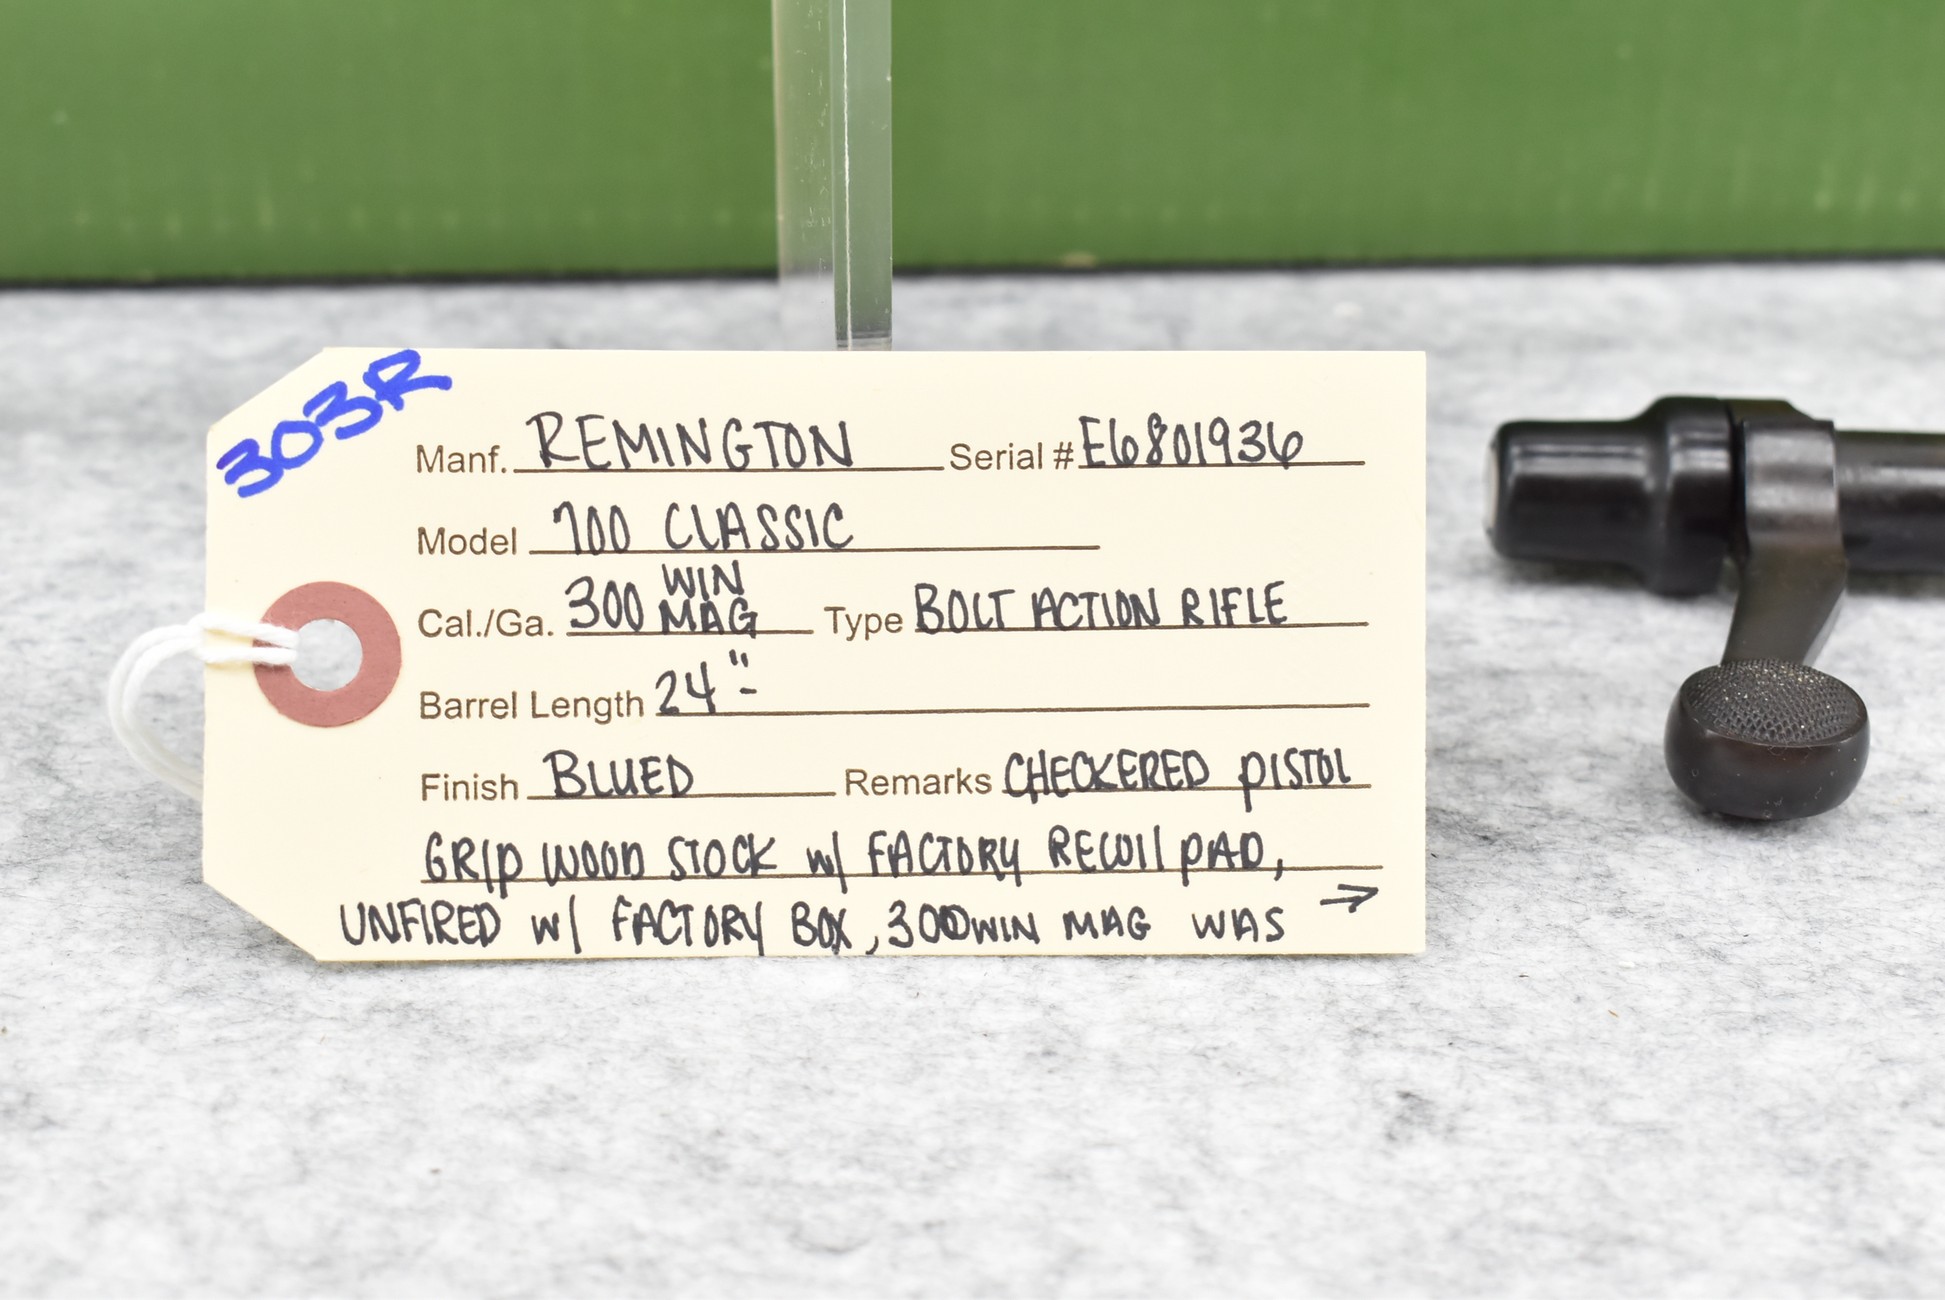 303R
Manf. REMINGTON Serial # E6801936
Model 700 CLASSIC
Cal./Ga. 300 WIN MAG Type BOLT ACTION RIFLE
Barrel Length 24"-
Finish BLUED Remarks CHECKERED PISTOL
GRIP WOOD STOCK w/ FACTORY RECOIL PAD,
UNFIRED w/ FACTORY BOX, 300WIN MAG WAS →